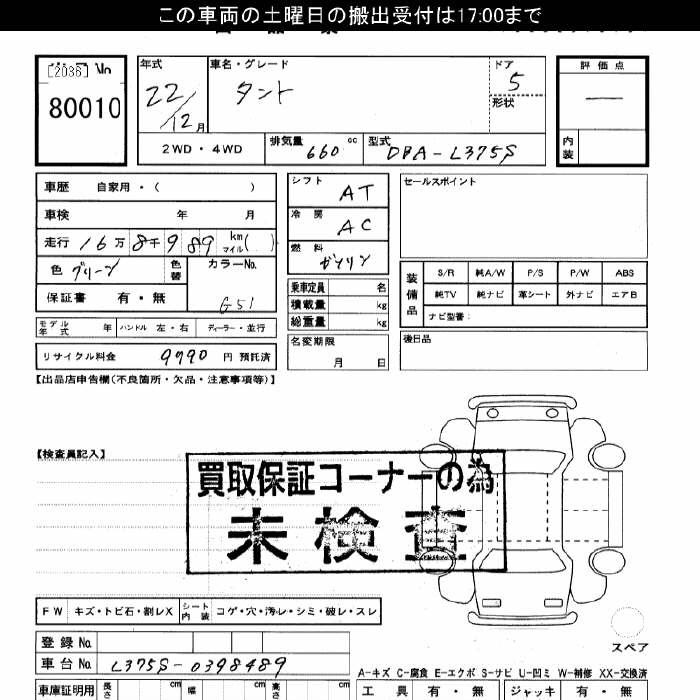 この車両の土曜日の搬出受付は17:00まで
[2036] No
80010
年式
22/12月
車名・グレード
タント
ドア
5
形状
評価点
—
内装
2WD・4WD
排気量 660 cc
型式 DBA-L375S
車歴 自家用・( )
車検 年 月
走行 16万8千989 km マイル( )
色 グリーン
色替
カラーNo.
G51
保証書 有・無
モデル年式 年
ハンドル 左・右
ディーラー・並行
リサイクル料金 9790 円 預託済
シフト AT
冷房 AC
燃料 ガソリン
乗車定員 名
積載量 kg
総重量 kg
名変期限
月 日
セールスポイント
装備品
S/R 純A/W P/S P/W ABS
純TV 純ナビ 革シート 外ナビ エアB
ナビ型番:
後日品
【出品店申告欄(不良箇所・欠品・注意事項等)】
【検査員記入】
買取保証コーナーの為
未検査
FW キズ・トビ石・割レX
シート内装 コゲ・穴・汚レ・シミ・破レ・スレ
スペア
登録No.
車台No. L375S-0398489
A-キズ C-腐食 E-エクボ S-サビ U-凹ミ W-補修 XX-交換済
車庫証明用 長さ cm 幅 cm 高さ cm
工具 有・無 ジャッキ 有・無